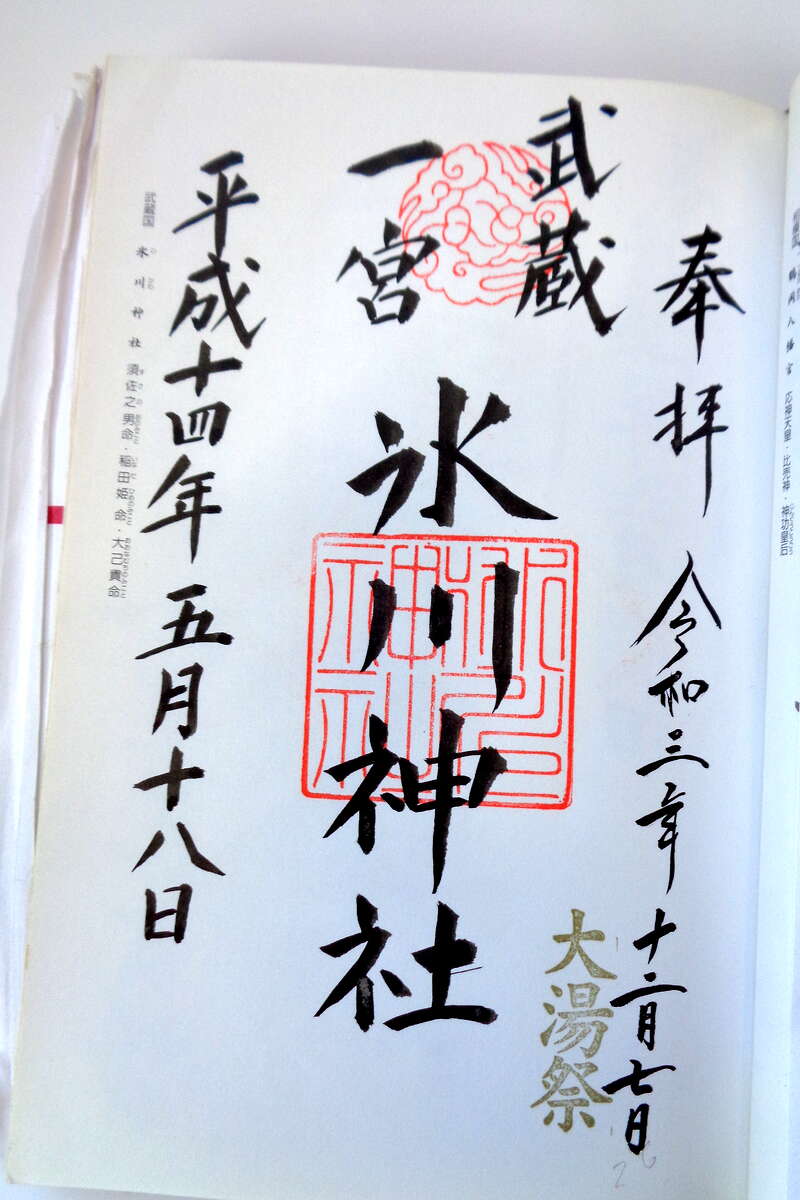 奉拝
令和三年十二月七日
大湯祭
武蔵
一宮
氷川神社
平成十四年五月十八日
武蔵国 氷川神社 須佐之男命・稲田姫命・大己貴命
鶴岡八幡宮 応神天皇・比売神・神功皇后